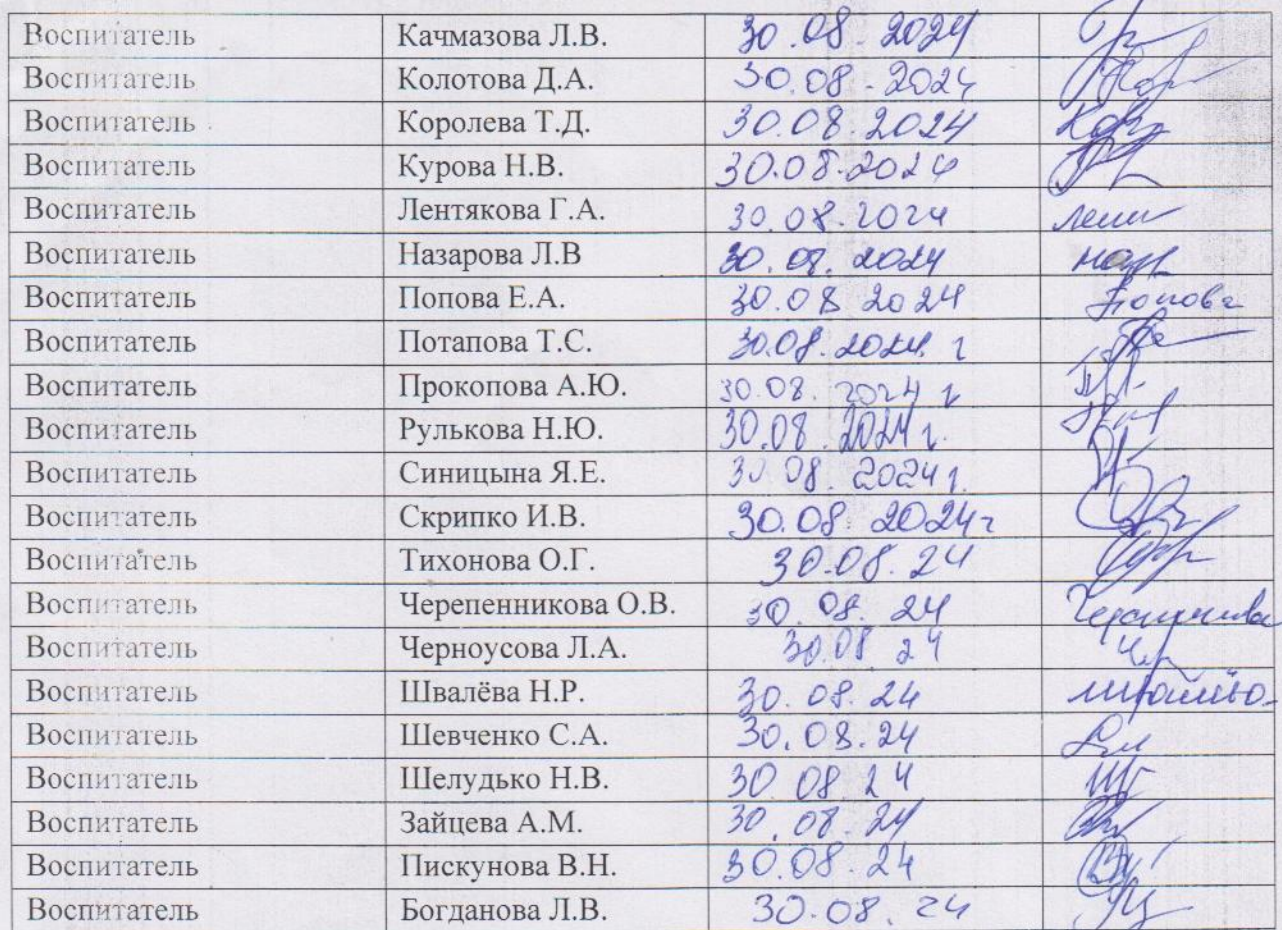 Воспитатель Качмазова Л.В. 30.08.2024
Воспитатель Колотова Д.А. 30.08.2024
Воспитатель Королева Т.Д. 30.08.2024
Воспитатель Курова Н.В. 30.08.2024
Воспитатель Лентякова Г.А. 30.08.2024
Воспитатель Назарова Л.В 30.08.2024
Воспитатель Попова Е.А. 30.08 2024 Попова
Воспитатель Потапова Т.С. 30.08.2024. г
Воспитатель Прокопова А.Ю. 30.08. 2024 г
Воспитатель Рулькова Н.Ю. 30.08.2024 г.
Воспитатель Синицына Я.Е. 30.08. 2024 г.
Воспитатель Скрипко И.В. 30.08 2024г
Воспитатель Тихонова О.Г. 30.08.24
Воспитатель Черепенникова О.В. 30.08.24
Воспитатель Черноусова Л.А. 30.08 24
Воспитатель Швалёва Н.Р. 30.08.24
Воспитатель Шевченко С.А. 30.08.24
Воспитатель Шелудько Н.В. 30 08 24
Воспитатель Зайцева А.М. 30.08.24
Воспитатель Пискунова В.Н. 30.08.24
Воспитатель Богданова Л.В. 30.08.24